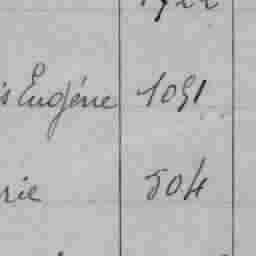 s Eugénie 1091
rie 504